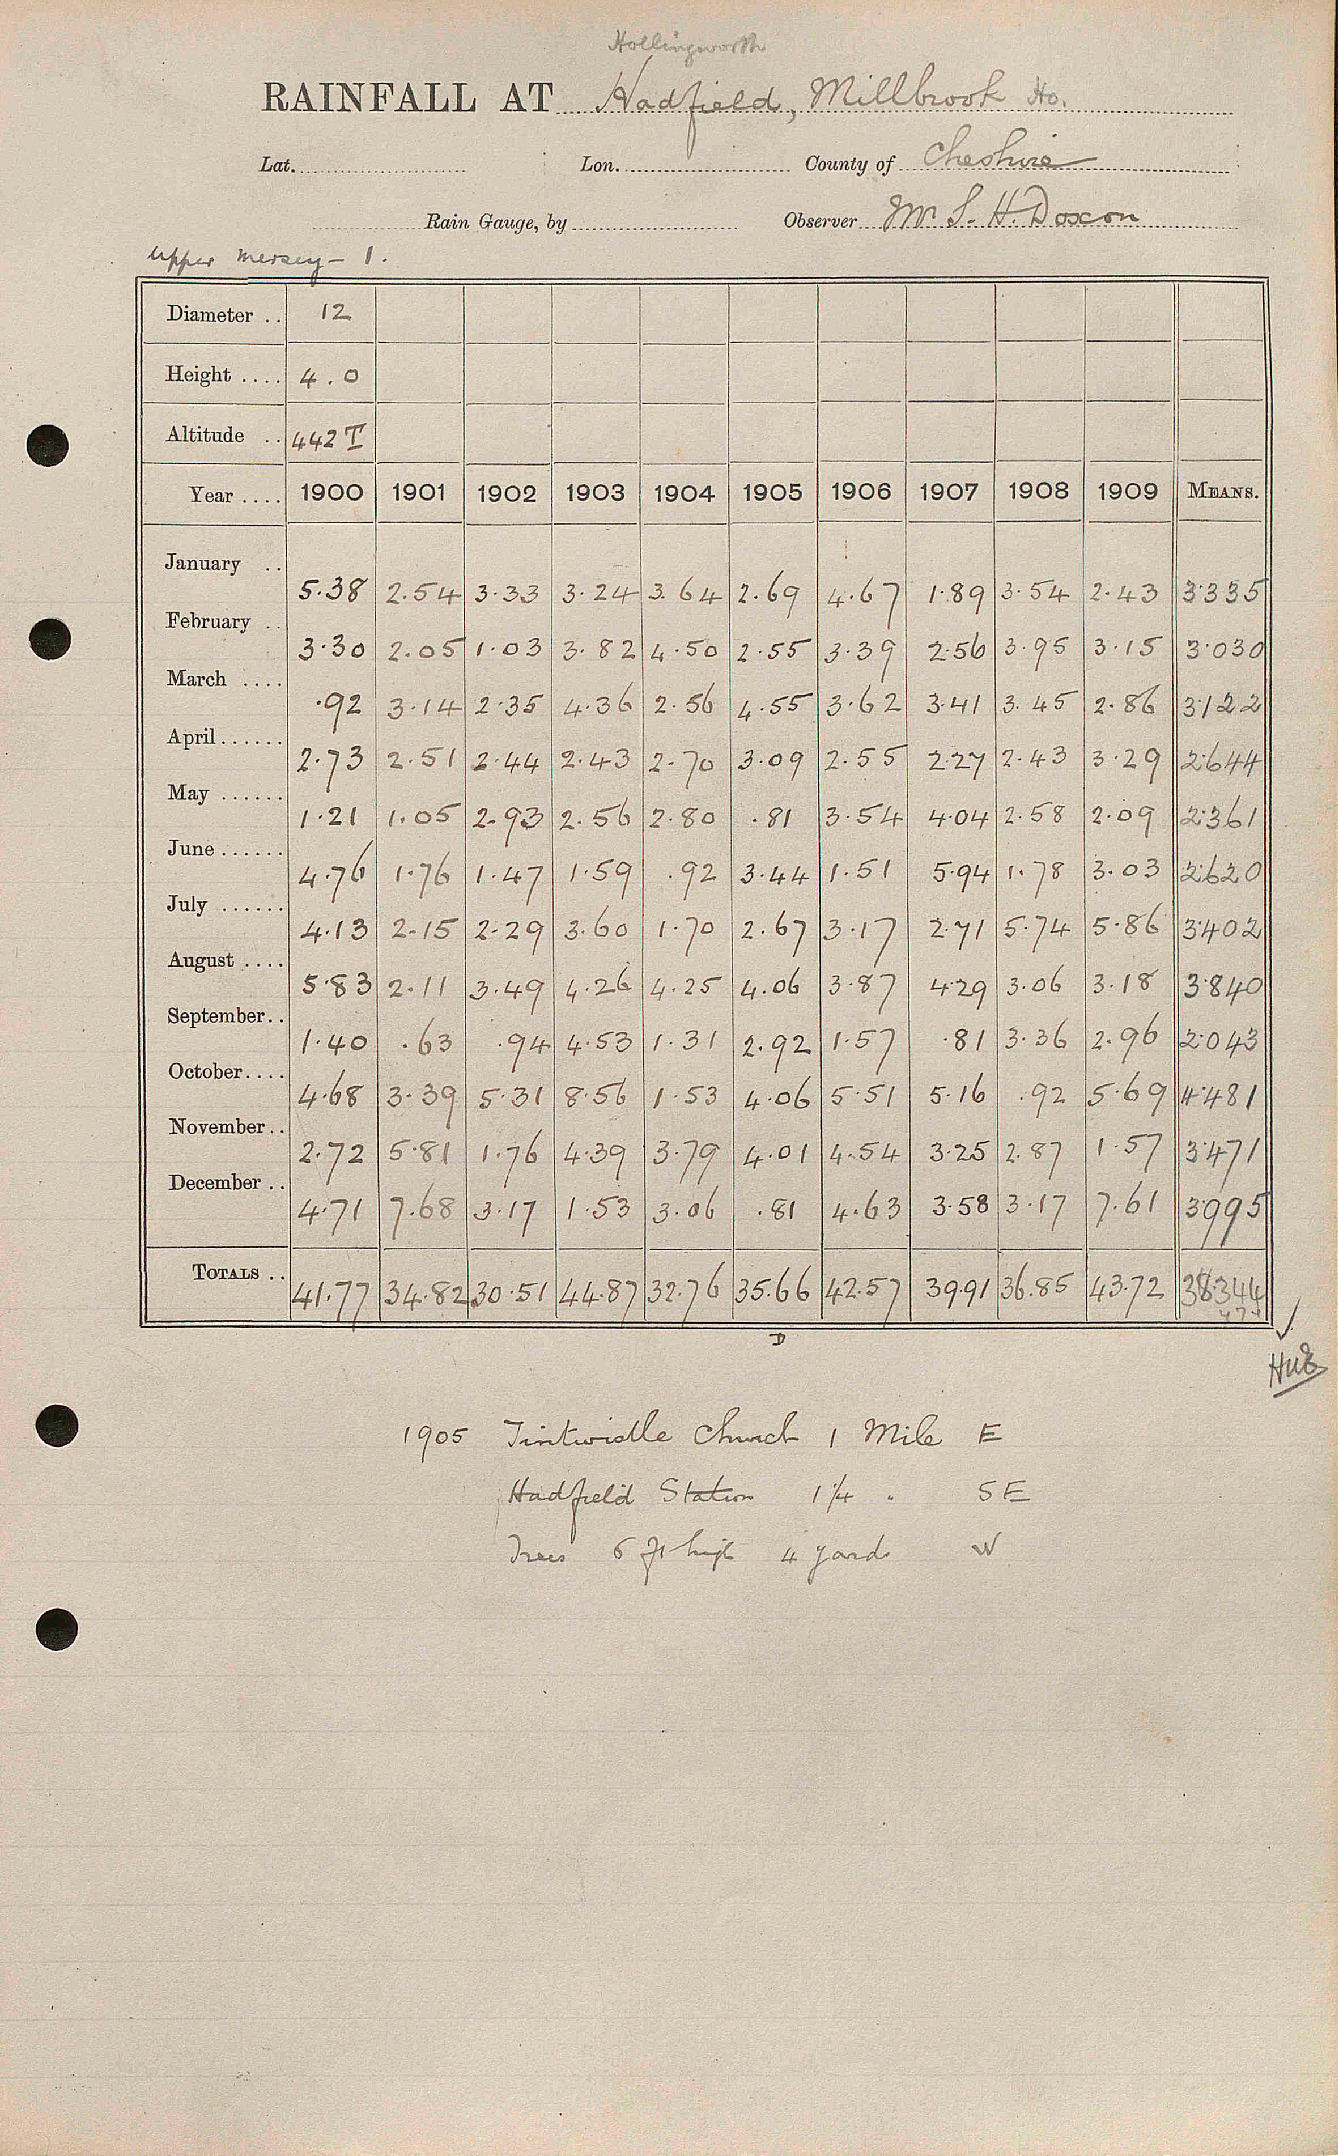 Hollingworth
RAINFALL AT Hadfield, Millbrook Ho.
Lat. Lon. County of Cheshire
Rain Gauge, by Observer Mr S. H. Doxon
Upper Mersey - 1.
Diameter .. 12
Height .... 4.0
Altitude .. 442 T
Year .... 1900 1901 1902 1903 1904 1905 1906 1907 1908 1909 MEANS.
January .. 5.38 2.54 3.33 3.24 3.64 2.69 4.67 1.89 3.54 2.43 3.335
February .. 3.30 2.05 1.03 3.82 4.50 2.55 3.39 2.56 3.95 3.15 3.030
March .... .92 3.14 2.35 4.36 2.56 4.55 3.62 3.41 3.45 2.86 3.122
April ...... 2.73 2.51 2.44 2.43 2.70 3.09 2.55 2.27 2.43 3.29 2.644
May ...... 1.21 1.05 2.93 2.56 2.80 .81 3.54 4.04 2.58 2.09 2.361
June ...... 4.76 1.76 1.47 1.59 .92 3.44 1.51 5.94 1.78 3.03 2.620
July ...... 4.13 2.15 2.29 3.60 1.70 2.67 3.17 2.71 5.74 5.86 3.402
August .... 5.83 2.11 3.49 4.26 4.25 4.06 3.87 4.29 3.06 3.18 3.840
September.. 1.40 .63 .94 4.53 1.31 2.92 1.57 .81 3.36 2.96 2.043
October.... 4.68 3.39 5.31 8.56 1.53 4.06 5.51 5.16 .92 5.69 4.481
November.. 2.72 5.81 1.76 4.39 3.79 4.01 4.54 3.25 2.87 1.57 3.471
December .. 4.71 7.68 3.17 1.53 3.06 .81 4.63 3.58 3.17 7.61 3.995
TOTALS .. 41.77 34.82 30.51 44.87 32.76 35.66 42.57 39.91 36.85 43.72 38.344
D
1905 Tintwistle Church 1 Mile E
Hadfield Station 1 1/4 " SE
Trees 6 ft high 4 yards W